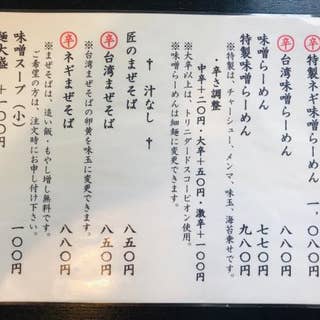 一、〇八〇円
辛 台湾味噌らーめん 八八〇円
特製味噌らーめん 九八〇円
味噌らーめん 七七〇円
※特製は、チャーシュー、メンマ、味玉、海苔乗せです。
・辛さ調整
中辛+二〇円・大辛+五〇円・激辛+一〇〇円
※大辛以上は、トリニダードスコーピオン使用。
※味噌らーめんは細麺に変更できます。
† 汁なし †
匠のまぜそば 八五〇円
辛 台湾まぜそば 八五〇円
※台湾まぜそばの卵黄を味玉に変更できます。
辛 ネギまぜそば 八八〇円
※まぜそばは、追い飯・もやし増し無料です。
ご希望の方は、注文時にお申し付け下さい。
味噌スープ(小) 一〇〇円
麺大盛 +一〇〇円